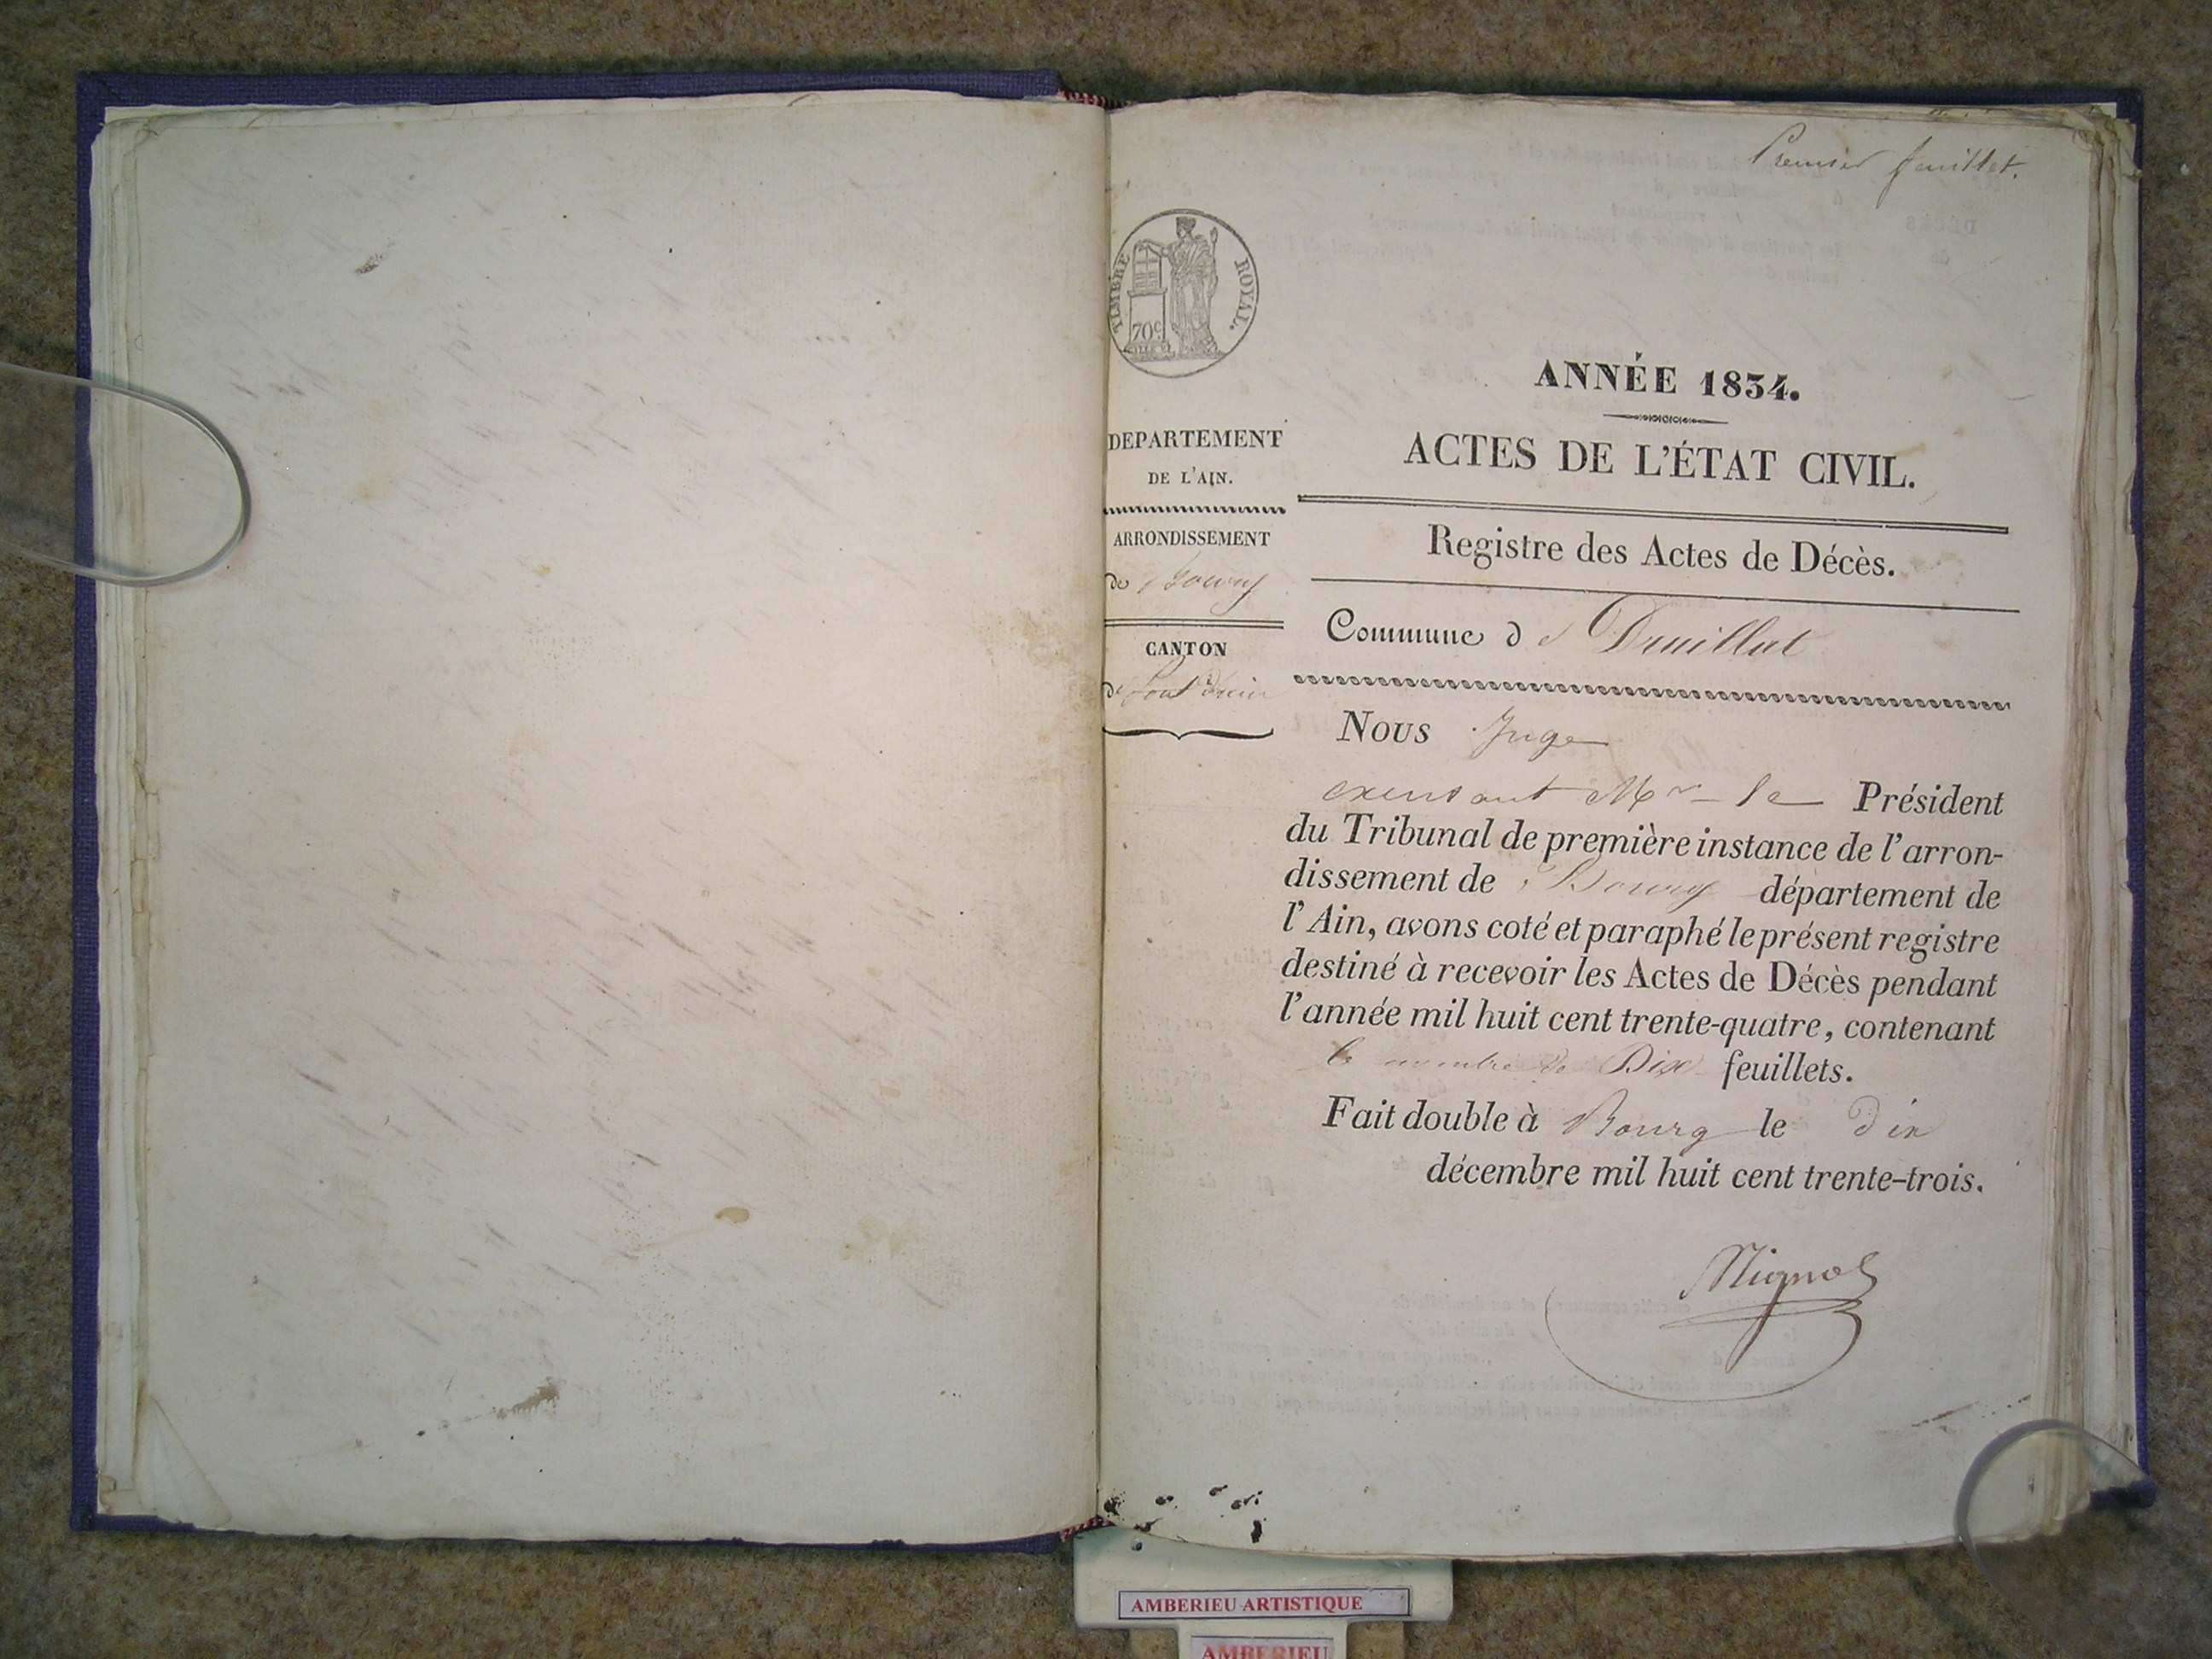 Premier feuillet.
TIMBRE ROYAL.
70c
ANNÉE 1834.
DEPARTEMENT
DE L'AIN.
ACTES DE L'ÉTAT CIVIL.
ARRONDISSEMENT
de Bourg
Registre des Actes de Décès.
CANTON
de Pont d'ain
Commune de Druillat
Nous Juge
exensant Mr le Président
du Tribunal de première instance de l'arron-
dissement de Bourg département de
l'Ain, avons coté et paraphé le présent registre
destiné à recevoir les Actes de Décès pendant
l'année mil huit cent trente-quatre, contenant
le nombre de Dix feuillets.
Fait double à Bourg le dix
décembre mil huit cent trente-trois.
AMBERIEU ARTISTIQUE
AMBERIEU